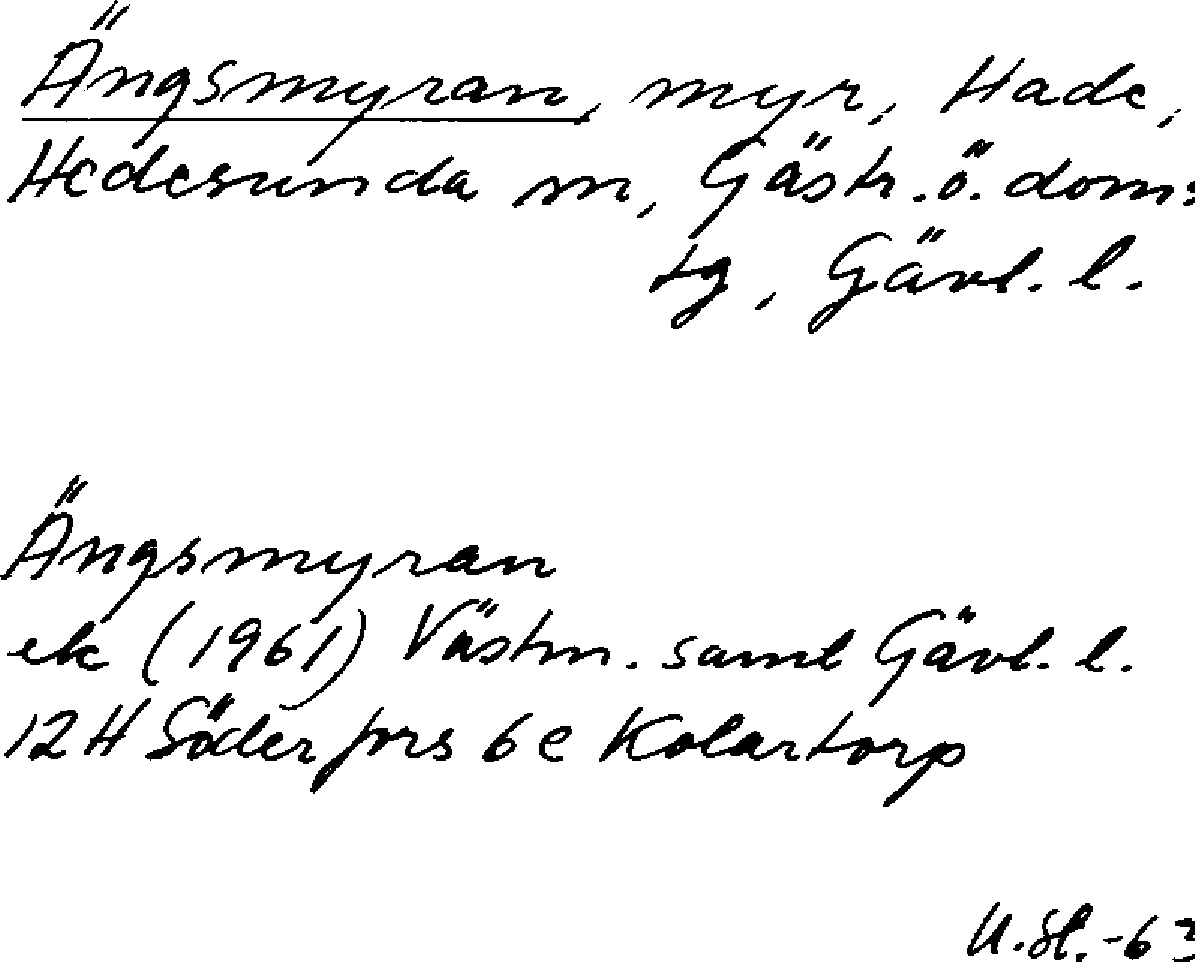 Ängsmyran, myr, Hade,
Hedesunda sn, Gästr. ö. doms:
tg, Gävl. l.
Ängsmyran
ek (1961) Västm. samt Gävl. l.
12H Söderfors 6e Kolartorp
-63